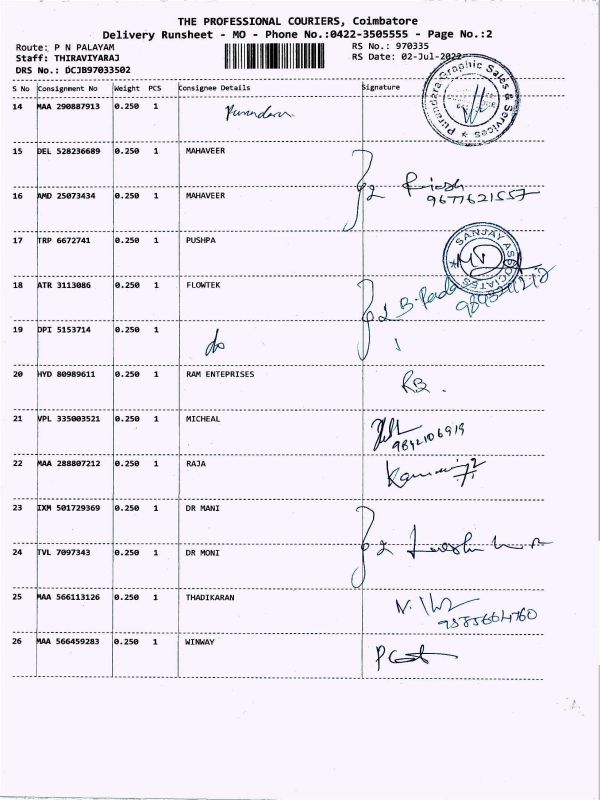 THE PROFESSIONAL COURIERS, Coimbatore
Delivery Runsheet - MO - Phone No.:0422-3505555 - Page No.:2
Route: P N PALAYAM
RS No.: 970335
Staff: THIRAVIYARAJ
RS Date: 02-Jul-2022
DRS No.: DCJB97033502
S No Consignment No Weight PCS Consignee Details Signature
Purandara Graphic Sales & Services
14 MAA 290887913 0.250 1
15 DEL 528236689 0.250 1 MAHAVEER
9677621557
16 AMD 25073434 0.250 1 MAHAVEER
17 TRP 6672741 0.250 1 PUSHPA
SANJAY ASSOCIATES
18 ATR 3113086 0.250 1 FLOWTEK
19 DPI 5153714 0.250 1
do
20 HYD 80989611 0.250 1 RAM ENTEPRISES
RB
21 VPL 335003521 0.250 1 MICHEAL
9842106919
22 MAA 288807212 0.250 1 RAJA
23 IXM 501729369 0.250 1 DR MANI
24 TVL 7097343 0.250 1 DR MONI
25 MAA 566113126 0.250 1 THADIKARAN
9585664760
26 MAA 566459283 0.250 1 WINWAY